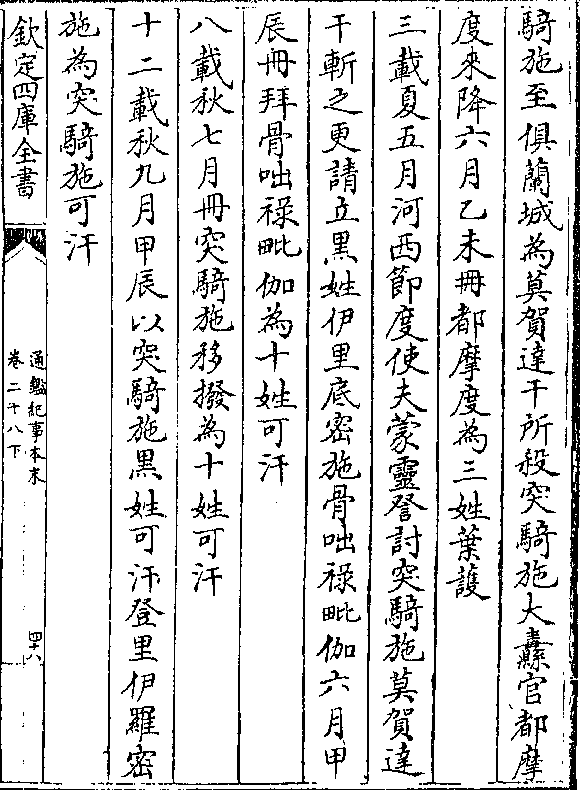 騎施至俱蘭城為莫賀達干所殺突騎施大纛官都摩
度來降六月乙未冊都摩度為三姓葉護
三載夏五月河西節度使夫蒙靈詧討突騎施莫賀達
干斬之更請立黑姓伊里底密施骨咄祿毗伽六月甲
辰冊拜骨咄祿毗伽為十姓可汗
八載秋七月冊突騎施移撥為十姓可汗
十二載秋九月甲辰以突騎施黑姓可汗登里伊羅密
施為突騎施可汗
欽定四庫全書
通鑑紀事本末
卷二十八下
四十八